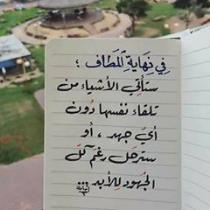 في نِهَايَةِ المَطاف ؛
ستأتي الأشياء من
تلقاء نفسها دُون
أيّ جهد ، أو
سترحل رغم كلّ
الجُهود للأبد